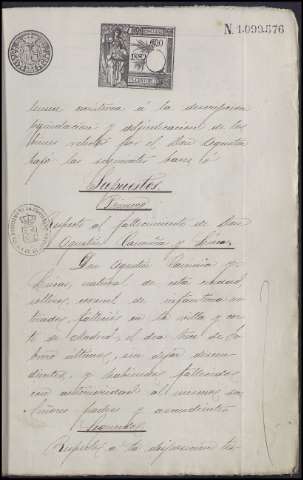 N. 1.099.576
á la descripcion
liquidacion y adjudicacion de los
bienes por el Don Agustin
bajo las siguientes bases
Supuestos
Primero
Respecto al fallecimiento de Don
Agustin y
Don Agustin y
natural de esta ciudad,
soltero, coronel de infantería re-
tirado, falleció en la villa y cor-
te de Madrid, el dia trece de Fe-
brero último, sin dejar descen-
dientes, y habiendo fallecido
con anterioridad al mismo sus
Señores padres y ascendientes
Segundo
Respecto a la disposicion tes-